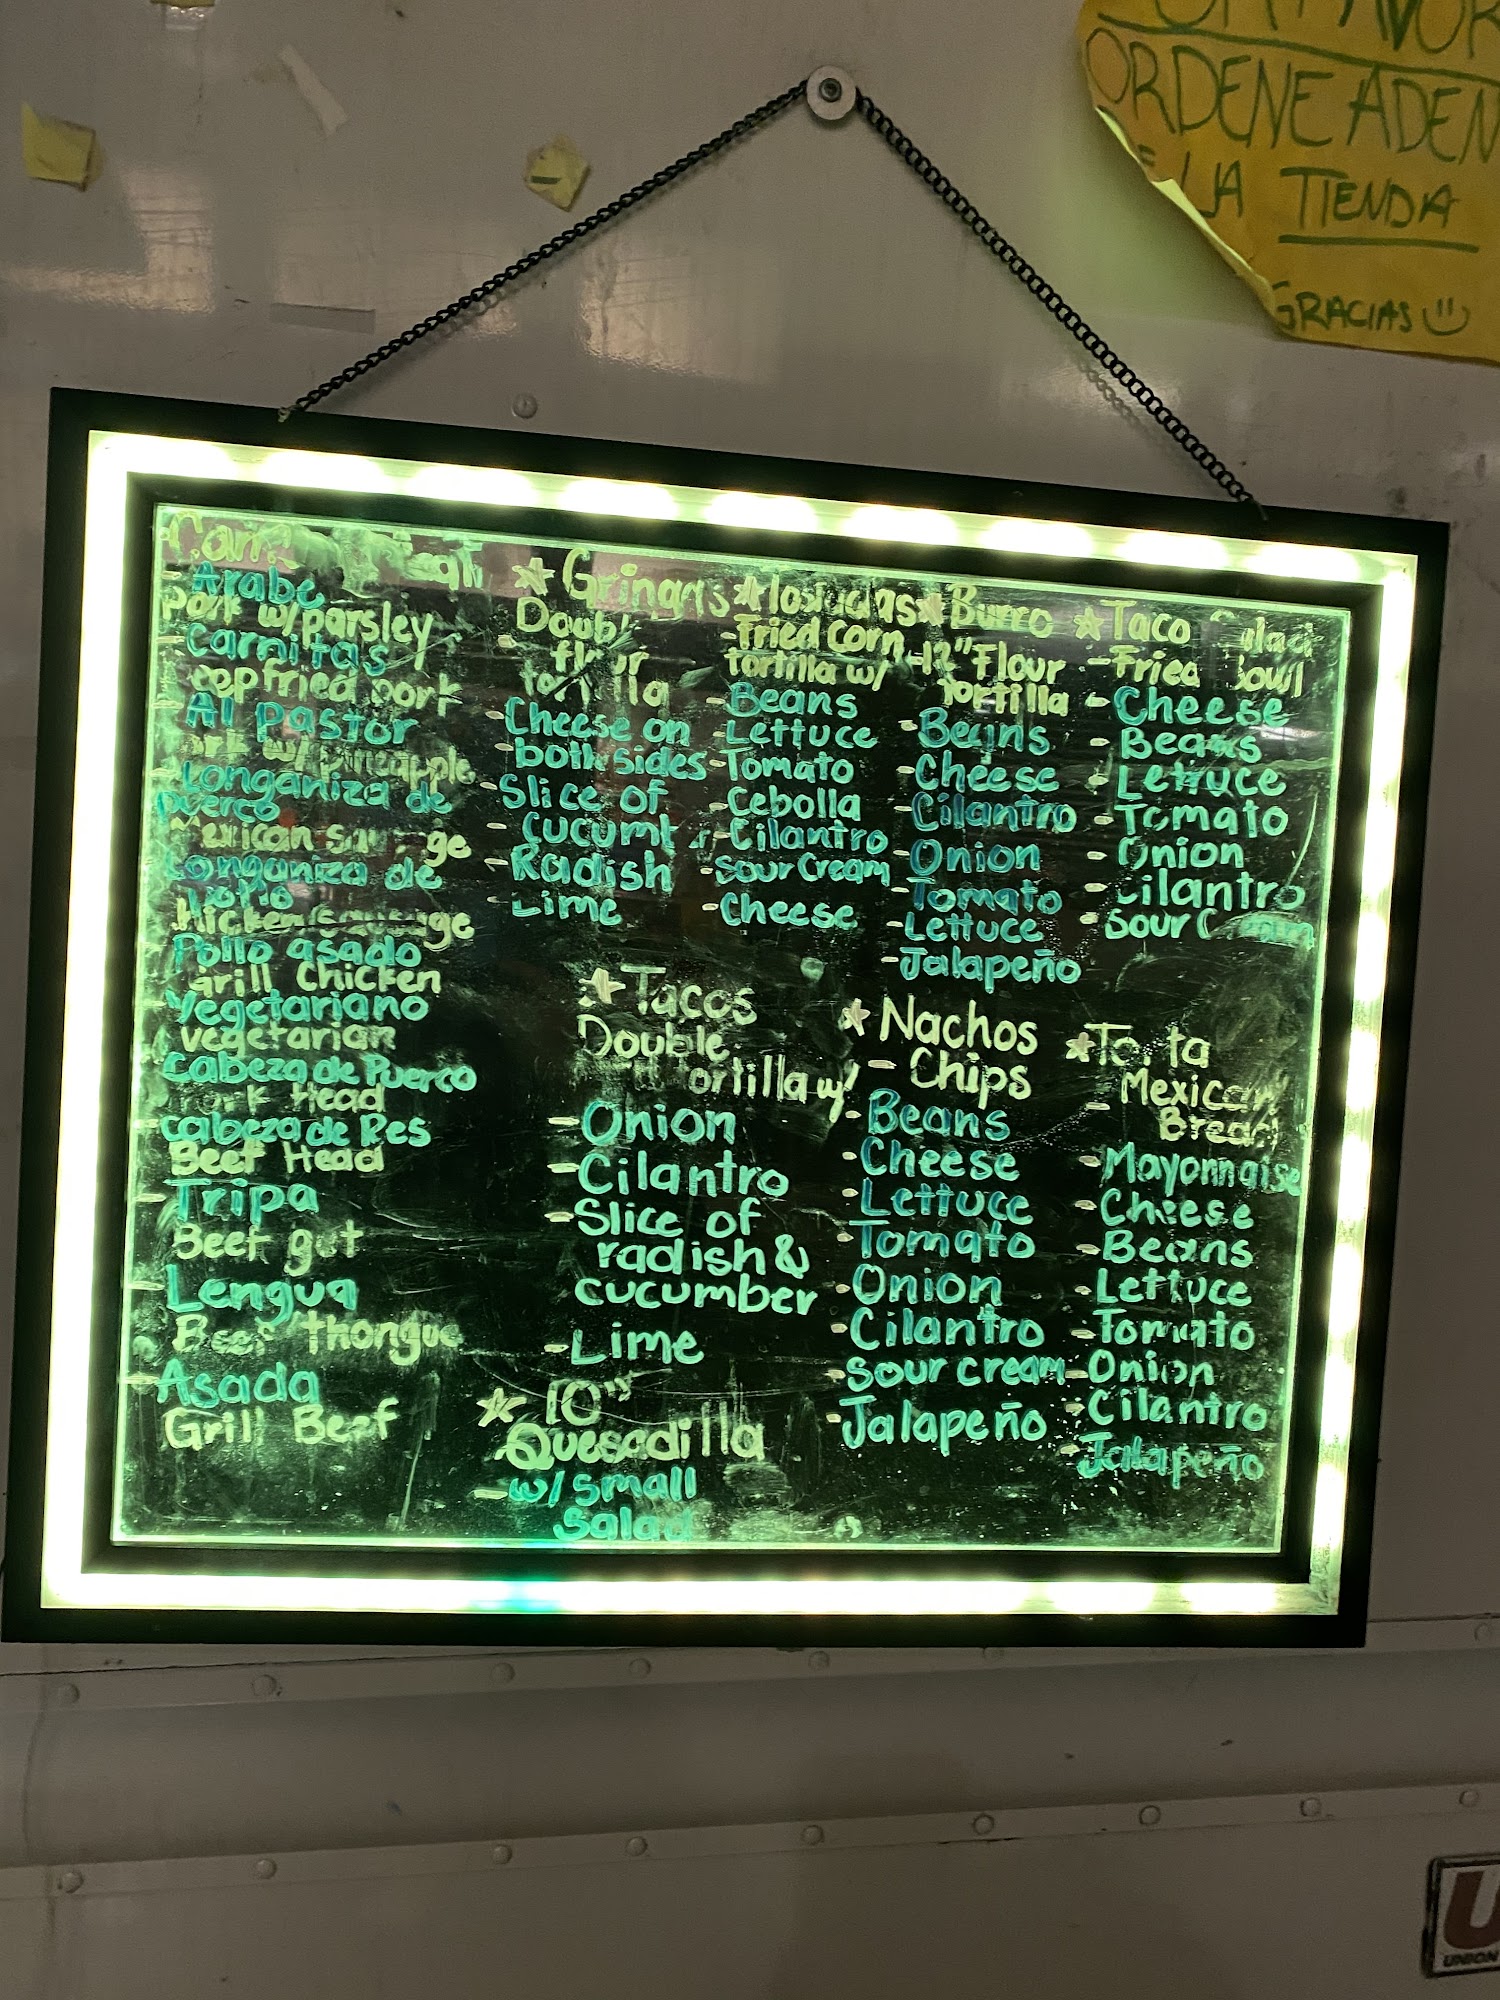 ORDENE ADEN
LA TIENDA
GRACIAS
Arabe
Pork w/parsley
- Carnitas
eepfried pork
Al Pastor
ork w/pineapple
Longaniza de
puerco
Mexican sau ge
Longaniza de
Pollo
hicken sausage
Pollo asado
Grill Chicken
Vegetariano
vegetarian
Cabeza de Puerco
Pork Head
cabeza de Res
Beef Head
- Tripa
Beef gut
- Lengua
Beef thongue
- Asada
Grill Beef
☆ Gringas
- Doubl
flour
tortilla
- Cheese on
- both sides
- Slice of
- cucumb r
- Radish
- Lime
☆ Tostadas
- Fried Corn
tortilla w/
- Beans
- Lettuce
- Tomato
- Cebolla
- Cilantro
- Sour Cream
- Cheese
☆ Burro
- 12" Flour
Tortilla
- Beans
- Cheese
- Cilantro
- Onion
- Tomato
- Lettuce
- Jalapeño
☆ Taco Salad
- Fried bowl
- Cheese
- Beans
- Lettuce
- Tomato
- Onion
- Cilantro
- Sour Cream
☆ Tacos
Double
tortilla w/
- Onion
- Cilantro
- Slice of
radish &
cucumber
- Lime
☆ 10"
Quesadilla
- w/ Small
Salad
☆ Nachos
- Chips
- Beans
- Cheese
- Lettuce
- Tomato
- Onion
- Cilantro
- Sour cream
- Jalapeño
☆ Torta
- Mexican
Bread
- Mayonnaise
- Cheese
- Beans
- Lettuce
- Tomato
- Onion
- Cilantro
- Jalapeño
U
UNION